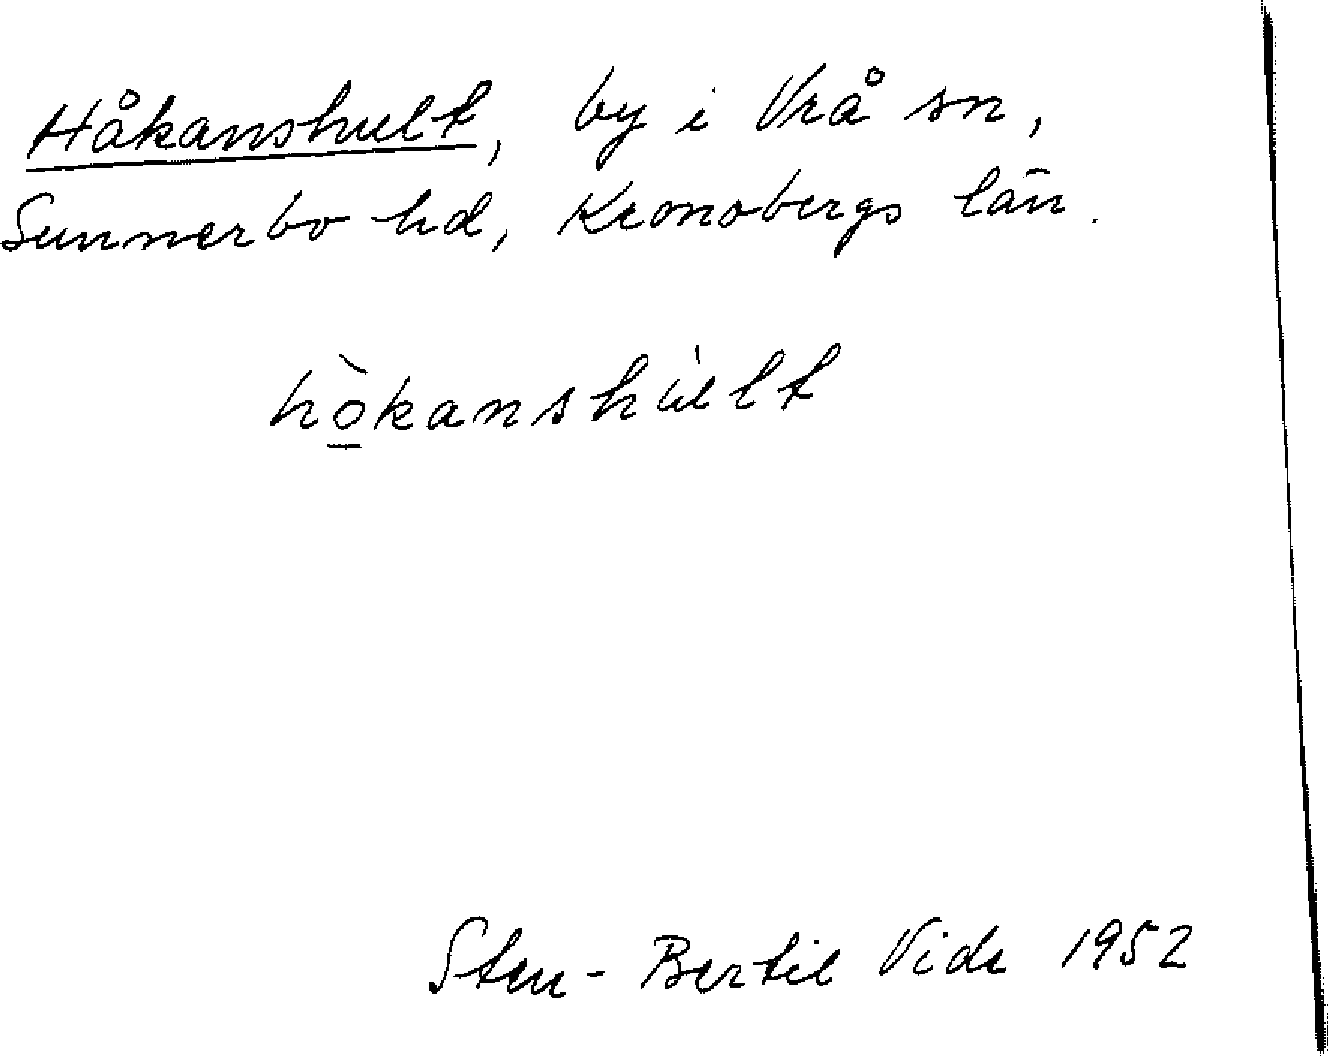 Håkanshult, by i Vrå sn,
Sunnerbo hd, Kronobergs län.
hò̲kanshúlt
Sten-Bertil Vide 1952